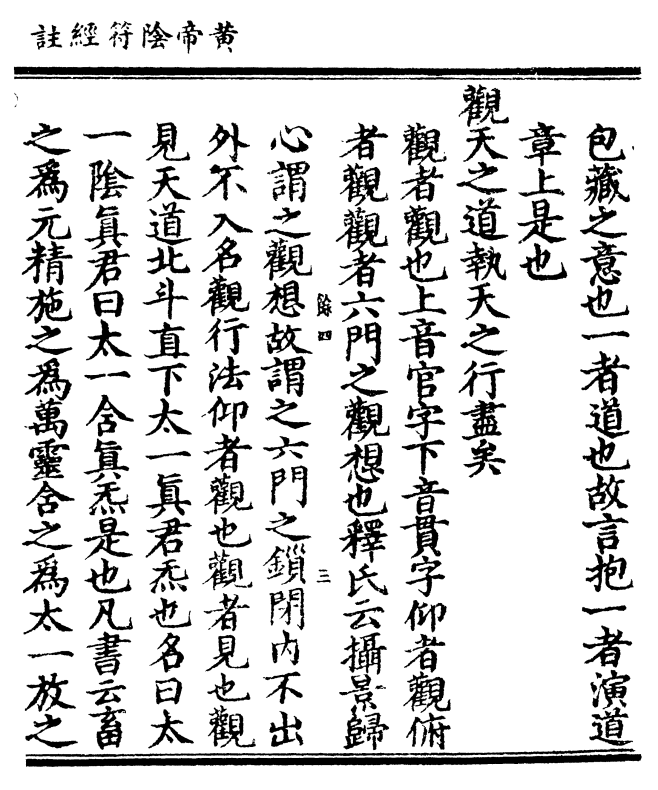 黃帝陰符經註
包藏之意也一者道也故言抱一者演道
章上是也
觀天之道執天之行盡矣
觀者觀也上音官字下音貫字仰者觀俯
者觀觀者六門之觀想也釋氏云攝景歸
餘四 三
心謂之觀想故謂之六門之鎖閉內不出
外不入名觀行法仰者觀也觀者見也觀
見天道北斗直下太一眞君炁也名曰太
一陰眞君曰太一含眞炁是也凡書云畜
之爲元精施之爲萬靈含之爲太一放之